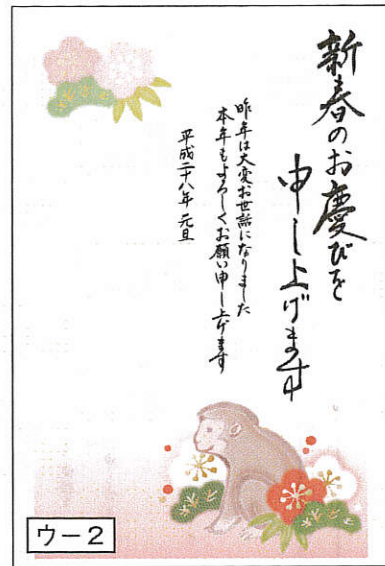 新春のお慶びを
申し上げます
昨年は大変お世話になりました
本年もよろしくお願い申し上げます
平成二十八年 元旦
ウー2